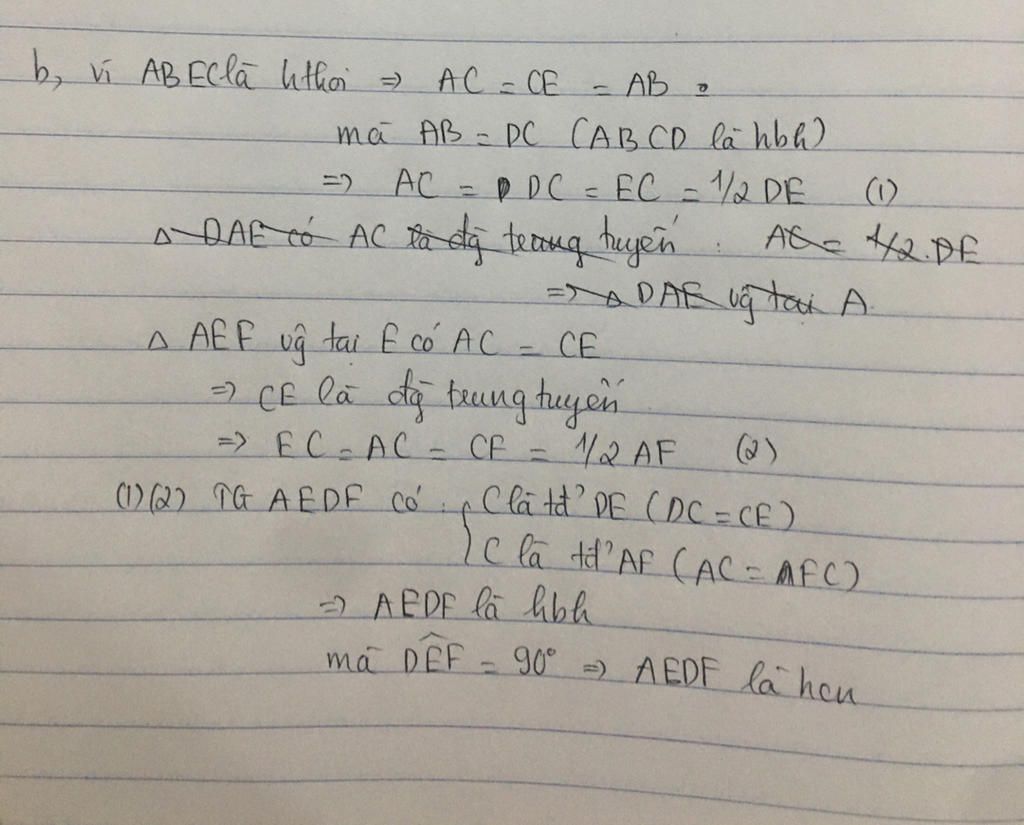 b, vì ABEC là hthoi => AC = CE = AB .
mà AB = DC (ABCD là hbh)
=> AC = DC = EC = 1/2 DE (1)
Δ DAE có AC là đg trung tuyến : AC = 1/2.DE
=> Δ DAE vg tại A.
Δ AEF vg tại E có AC = CE
=> CE là đg trung tuyến
=> EC = AC = CF = 1/2 AF (2)
(1)(2) TG AEDF có : { C là tđ' DE (DC = CE)
C là tđ' AF (AC = FC)
=> AEDF là hbh
mà DÊF = 90° => AEDF là hcn